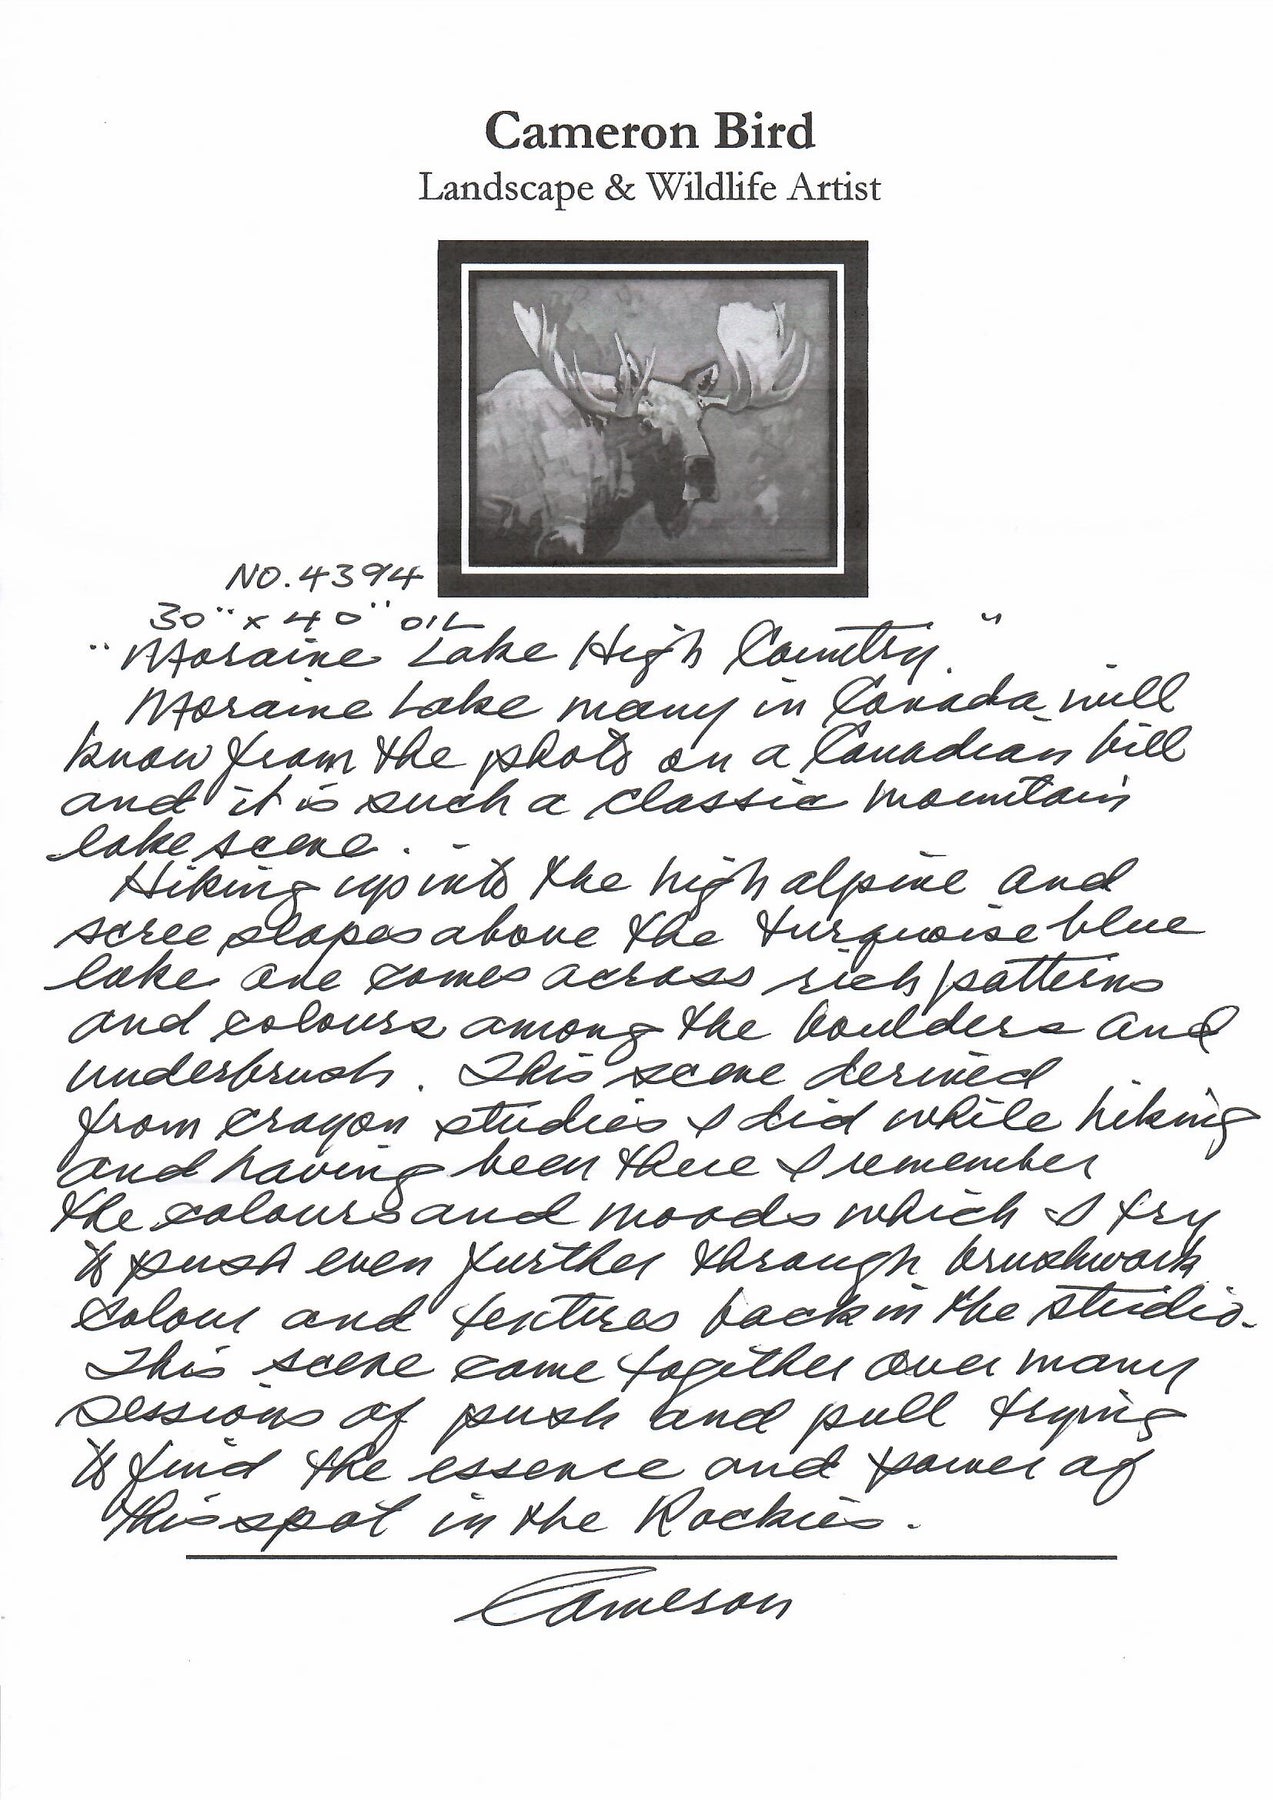 Cameron Bird
Landscape & Wildlife Artist
NO. 4394
30" x 40" OIL
"Moraine Lake High Country."
Moraine Lake many in Canada will
know from the photo on a Canadian bill
and it is such a classic mountain
lake scene.
Hiking up into the high alpine and
scree slopes above the turquoise blue
lake one comes across rich patterns
and colours among the boulders and
underbrush. This scene derived
from crayon studies I did while hiking
and having been there I remember
the colours and moods which I try
to push even further through brushwork
colour and textures back in the studio.
This scene came together over many
sessions of push and pull trying
to find the essence and power of
this spot in the Rockies.
Cameron